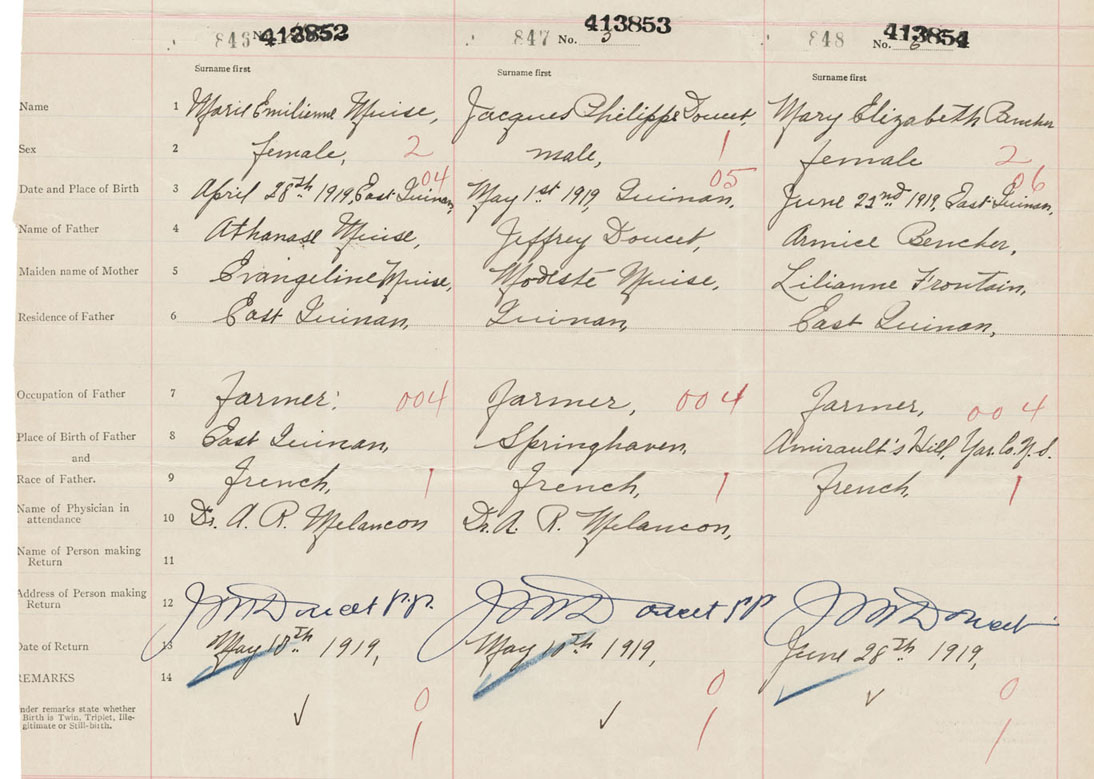 846 No. 413852 847 No. 3 413853 848 No. 6 413854
Surname first Surname first Surname first
Name 1 Marie Emilienne Muise, Jacques Philippe Doucet, Mary Elizabeth Bencher
Sex 2 female, 2 male, 1 female 2
04 05 06
Date and Place of Birth 3 April 28th 1919, East Quinan, May 1st 1919, Quinan, June 22nd 1919, East Quinan,
Name of Father 4 Athanase Muise, Jeffrey Doucet, Armice Bencher,
Maiden name of Mother 5 Evangeline Muise, Modeste Muise, Lilianne Frontain,
Residence of Father 6 East Quinan, Quinan, East Quinan,
Occupation of Father 7 Farmer. 004 Farmer, 004 Farmer, 004
Place of Birth of Father 8 East Quinan, Springhaven, Amirault's Hill, Yar. Co. N. S.
and
Race of Father. 9 French, 1 French, 1 French, 1
Name of Physician in
attendance 10 Dr. A. R. Melancon Dr. A. R. Melancon,
Name of Person making
Return 11
Address of Person making
Return 12 Doucet p.p. Doucet pp Doucet
Date of Return 13 May 1919, May 1919, June 28th 1919,
REMARKS 14
0 0 0
nder remarks state whether
Birth is Twin, Triplet, Ille-
gitimate or Still-birth.
1 1 1